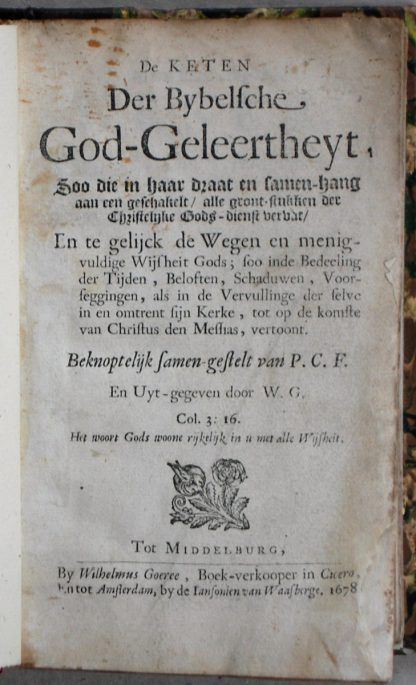 De KETEN
Der Bybelsche,
God-Geleertheyt,
Soo die in haar draat en samen-hang
aan een geschakelt / alle gront-stukken der
Christelijke Gods-dienst vervat /
En te gelijck de Wegen en menig-
vuldige Wijsheit Gods; soo inde Bedeeling
der Tijden, Beloften, Schaduwen, Voor-
seggingen, als in de Vervullinge der selve
in en omtrent sijn Kerke, tot op de komste
van Christus den Messias, vertoont.
Beknoptelijk samen-gestelt van P. C. F.
En Uyt-gegeven door W. G.
Col. 3: 16.
Het woort Gods woone rijkelijk in u met alle Wijsheit.
Tot MIDDELBURG,
By Wilhelmus Goeree, Boek-verkooper in Cicero,
En tot Amsterdam, by de Iansonien van Waasberge, 1678